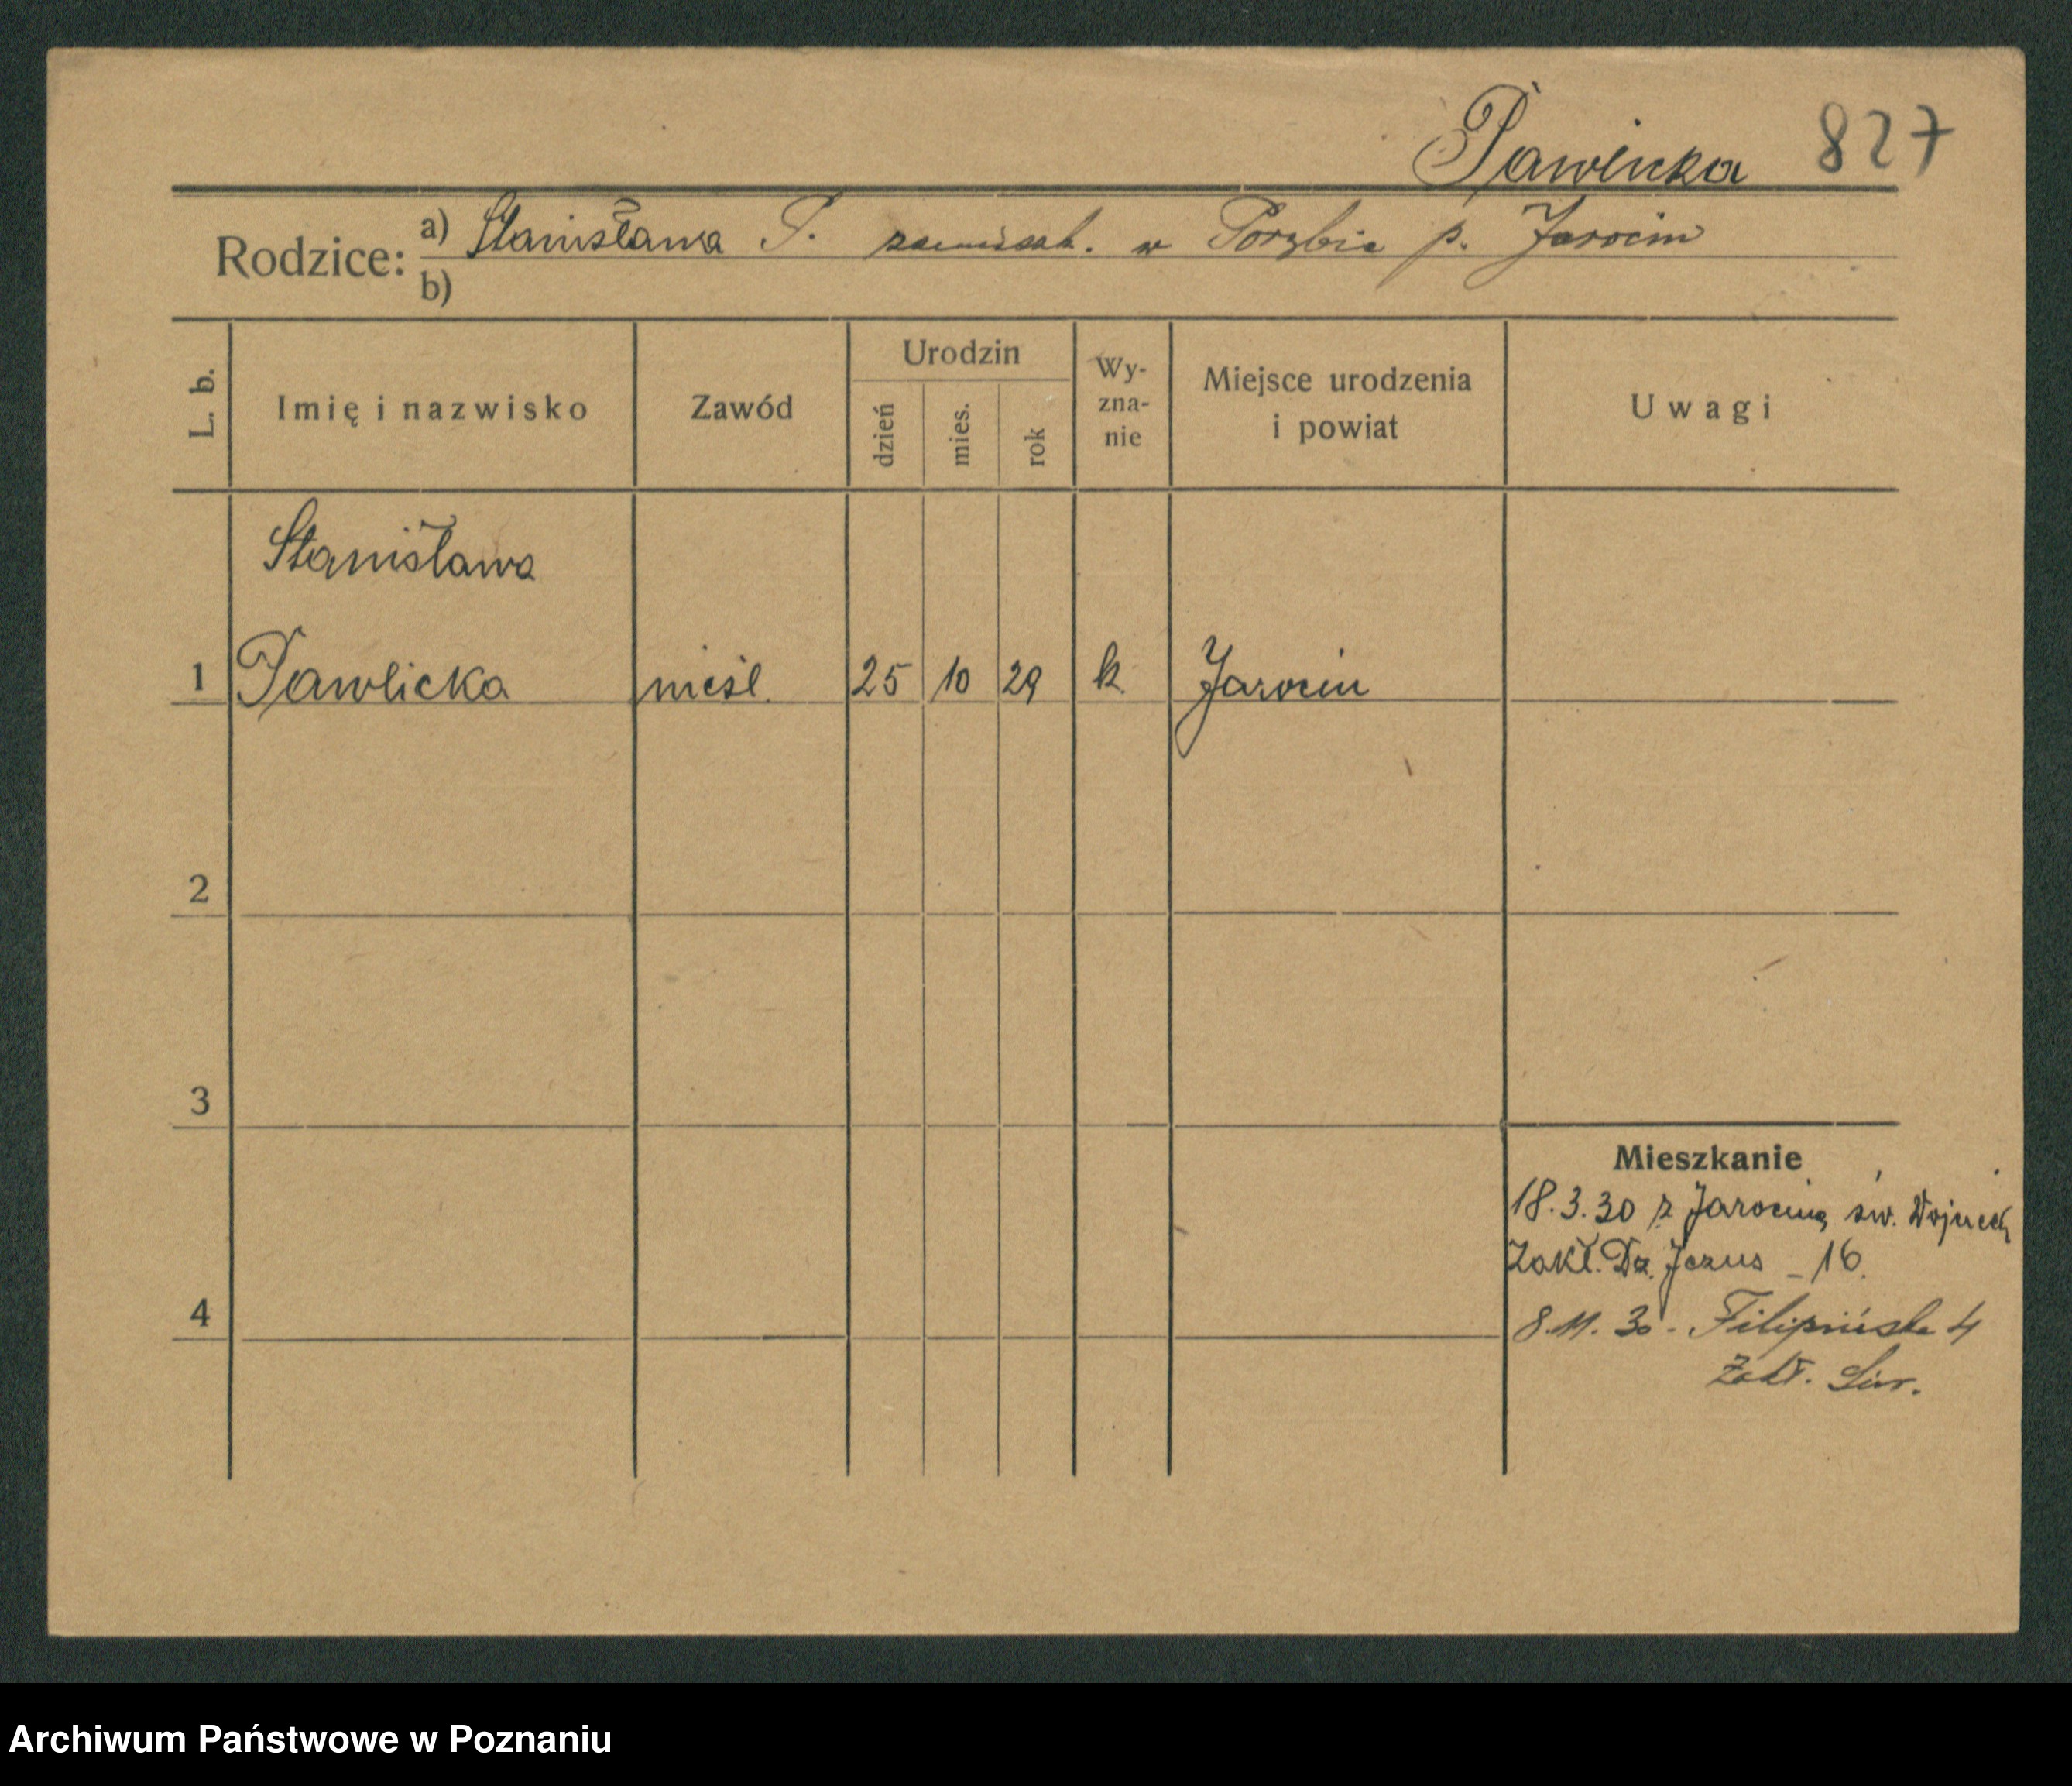 Pawlicka 827
Rodzice:
a) Stanisława P. zamieszk. w Porzbie p. Jarocin
b)
L. b.
Imię i nazwisko
Zawód
Urodzin
dzień
mies.
rok
Wy-
zna-
nie
Miejsce urodzenia
i powiat
Uwagi
Stanisława
1 Pawlicka nieśl. 25 10 29 k. Jarocin
2
3
4
Mieszkanie
18.3.30 z Jarocina św. Wojciech
Zakł. Dz. Jezus - 16.
8.11.30 - Filipińska 4
Zakł. Sier.
Archiwum Państwowe w Poznaniu